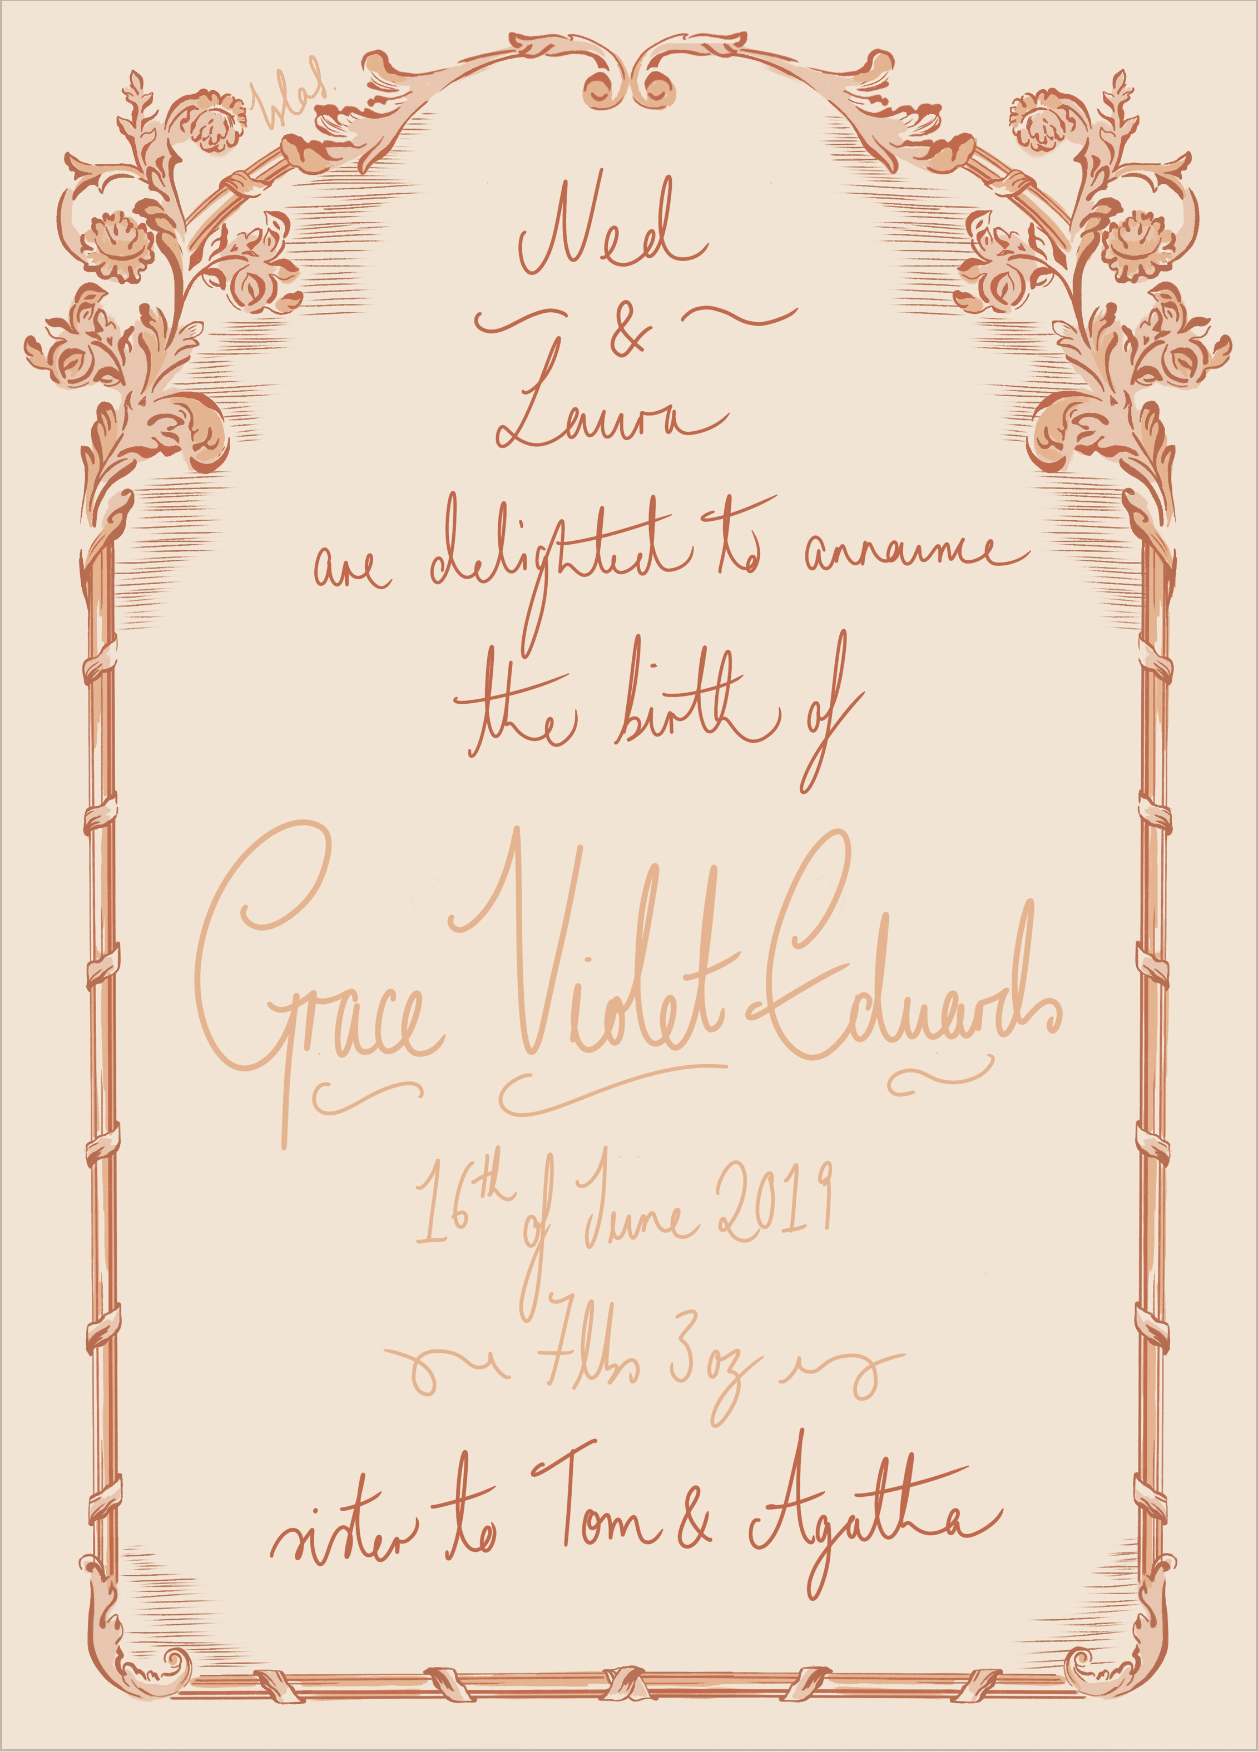 Ned
&
Laura
are delighted to announce
the birth of
Grace Violet Edwards
16th of June 2019
7lbs 3oz
sister to Tom & Agatha